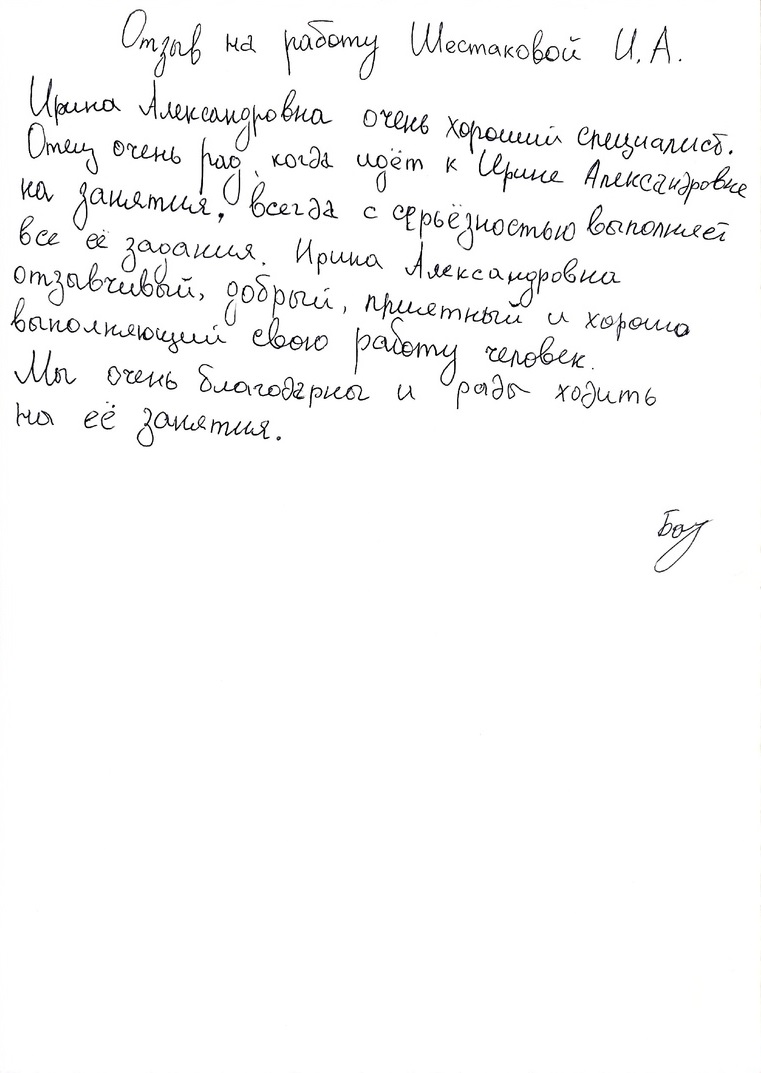 Отзыв на работу Шестаковой И.А.
Ирина Александровна очень хороший специалист.
Отец очень рад, когда идёт к Ирине Александровне
на занятия, всегда с серьёзностью выполняет
все её задания. Ирина Александровна
отзывчивый, добрый, приятный и хорошо
выполняющий свою работу человек.
Мы очень благодарны и рады ходить
на её занятия.